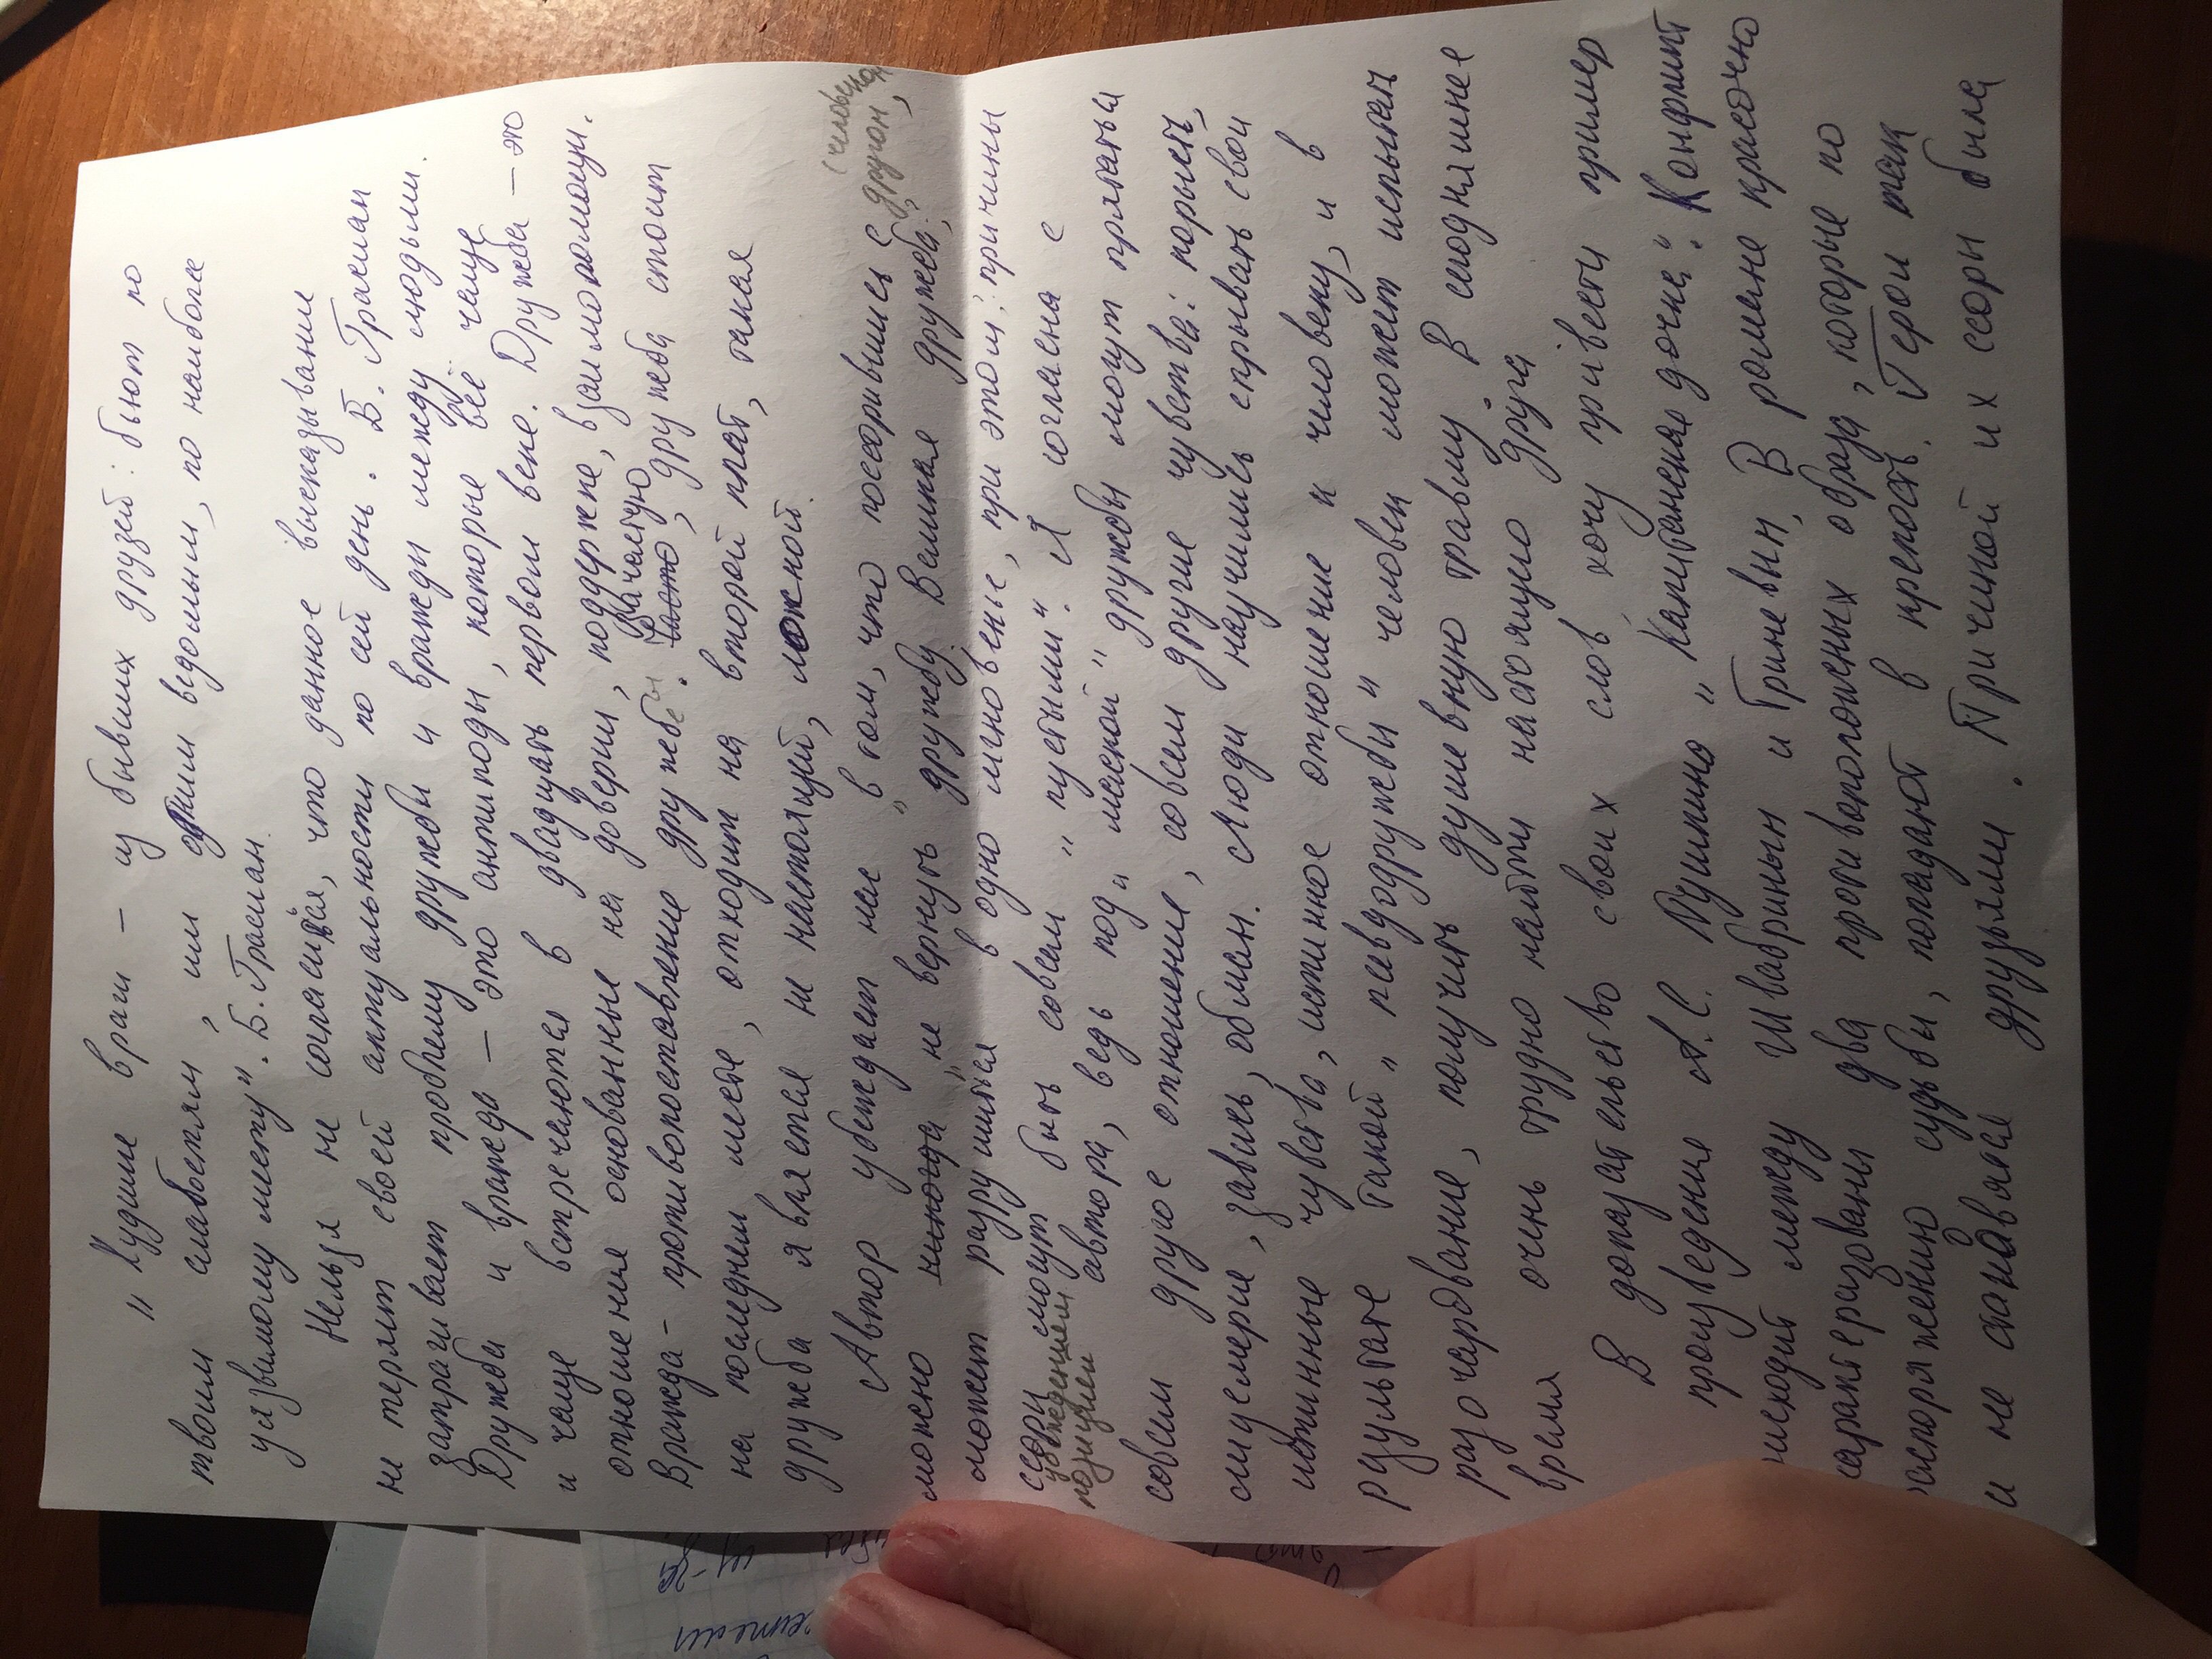 "Худшие враги – из бывших друзей: бьют по
твоим слабостям, им одним ведомым, по наиболее
уязвимому месту". Б. Грасиан.
Нельзя не согласится, что данное высказывание
не теряет своей актуальности по сей день. Б. Грасиан
затрагивает проблему дружбы и вражды между людьми.
Дружба и вражда – это антиподы, которые всё чаще
и чаще встречаются в двадцать первом веке. Дружба – это
отношения основанные на доверии, поддержке, взаимопомощи.
Вражда – противопоставление дружбе. Зачастую, дружба стоит
на последнем месте, отходит на второй план, такая
дружба является не настоящей, ложной.
(человеком
Автор убеждает нас в том, что поссорившись с другом,
можно "не вернуть" дружбу. Великая дружба,
может разрушится в одно мгновенье, при этом: причины
ссоры могут быть совсем "пустыми". Я согласна с
убеждением
позицией автора, ведь под "маской" дружбы могут прятаться
совсем другое отношение, совсем другие чувства: корысть,
лицемерие, зависть, обман. Люди научились скрывать свои
истинные чувства, истинное отношение к человеку, и в
результате такой "псевдодружбы" человек может испытать
разочарование, получить душевную травму. В сегодняшнее
время очень трудно найти настоящего друга
В доказательство своих слов хочу привести пример
произведения А.С. Пушкина "Капитанская дочка". Конфликт
происходит между Швабриным и Гриневым. В романе красочно
характеризованы два противоположеных образа, которые по
распоряжению судьбы, попадают в крепость. Герои так
и не становятся друзьями. Причиной их ссоры была